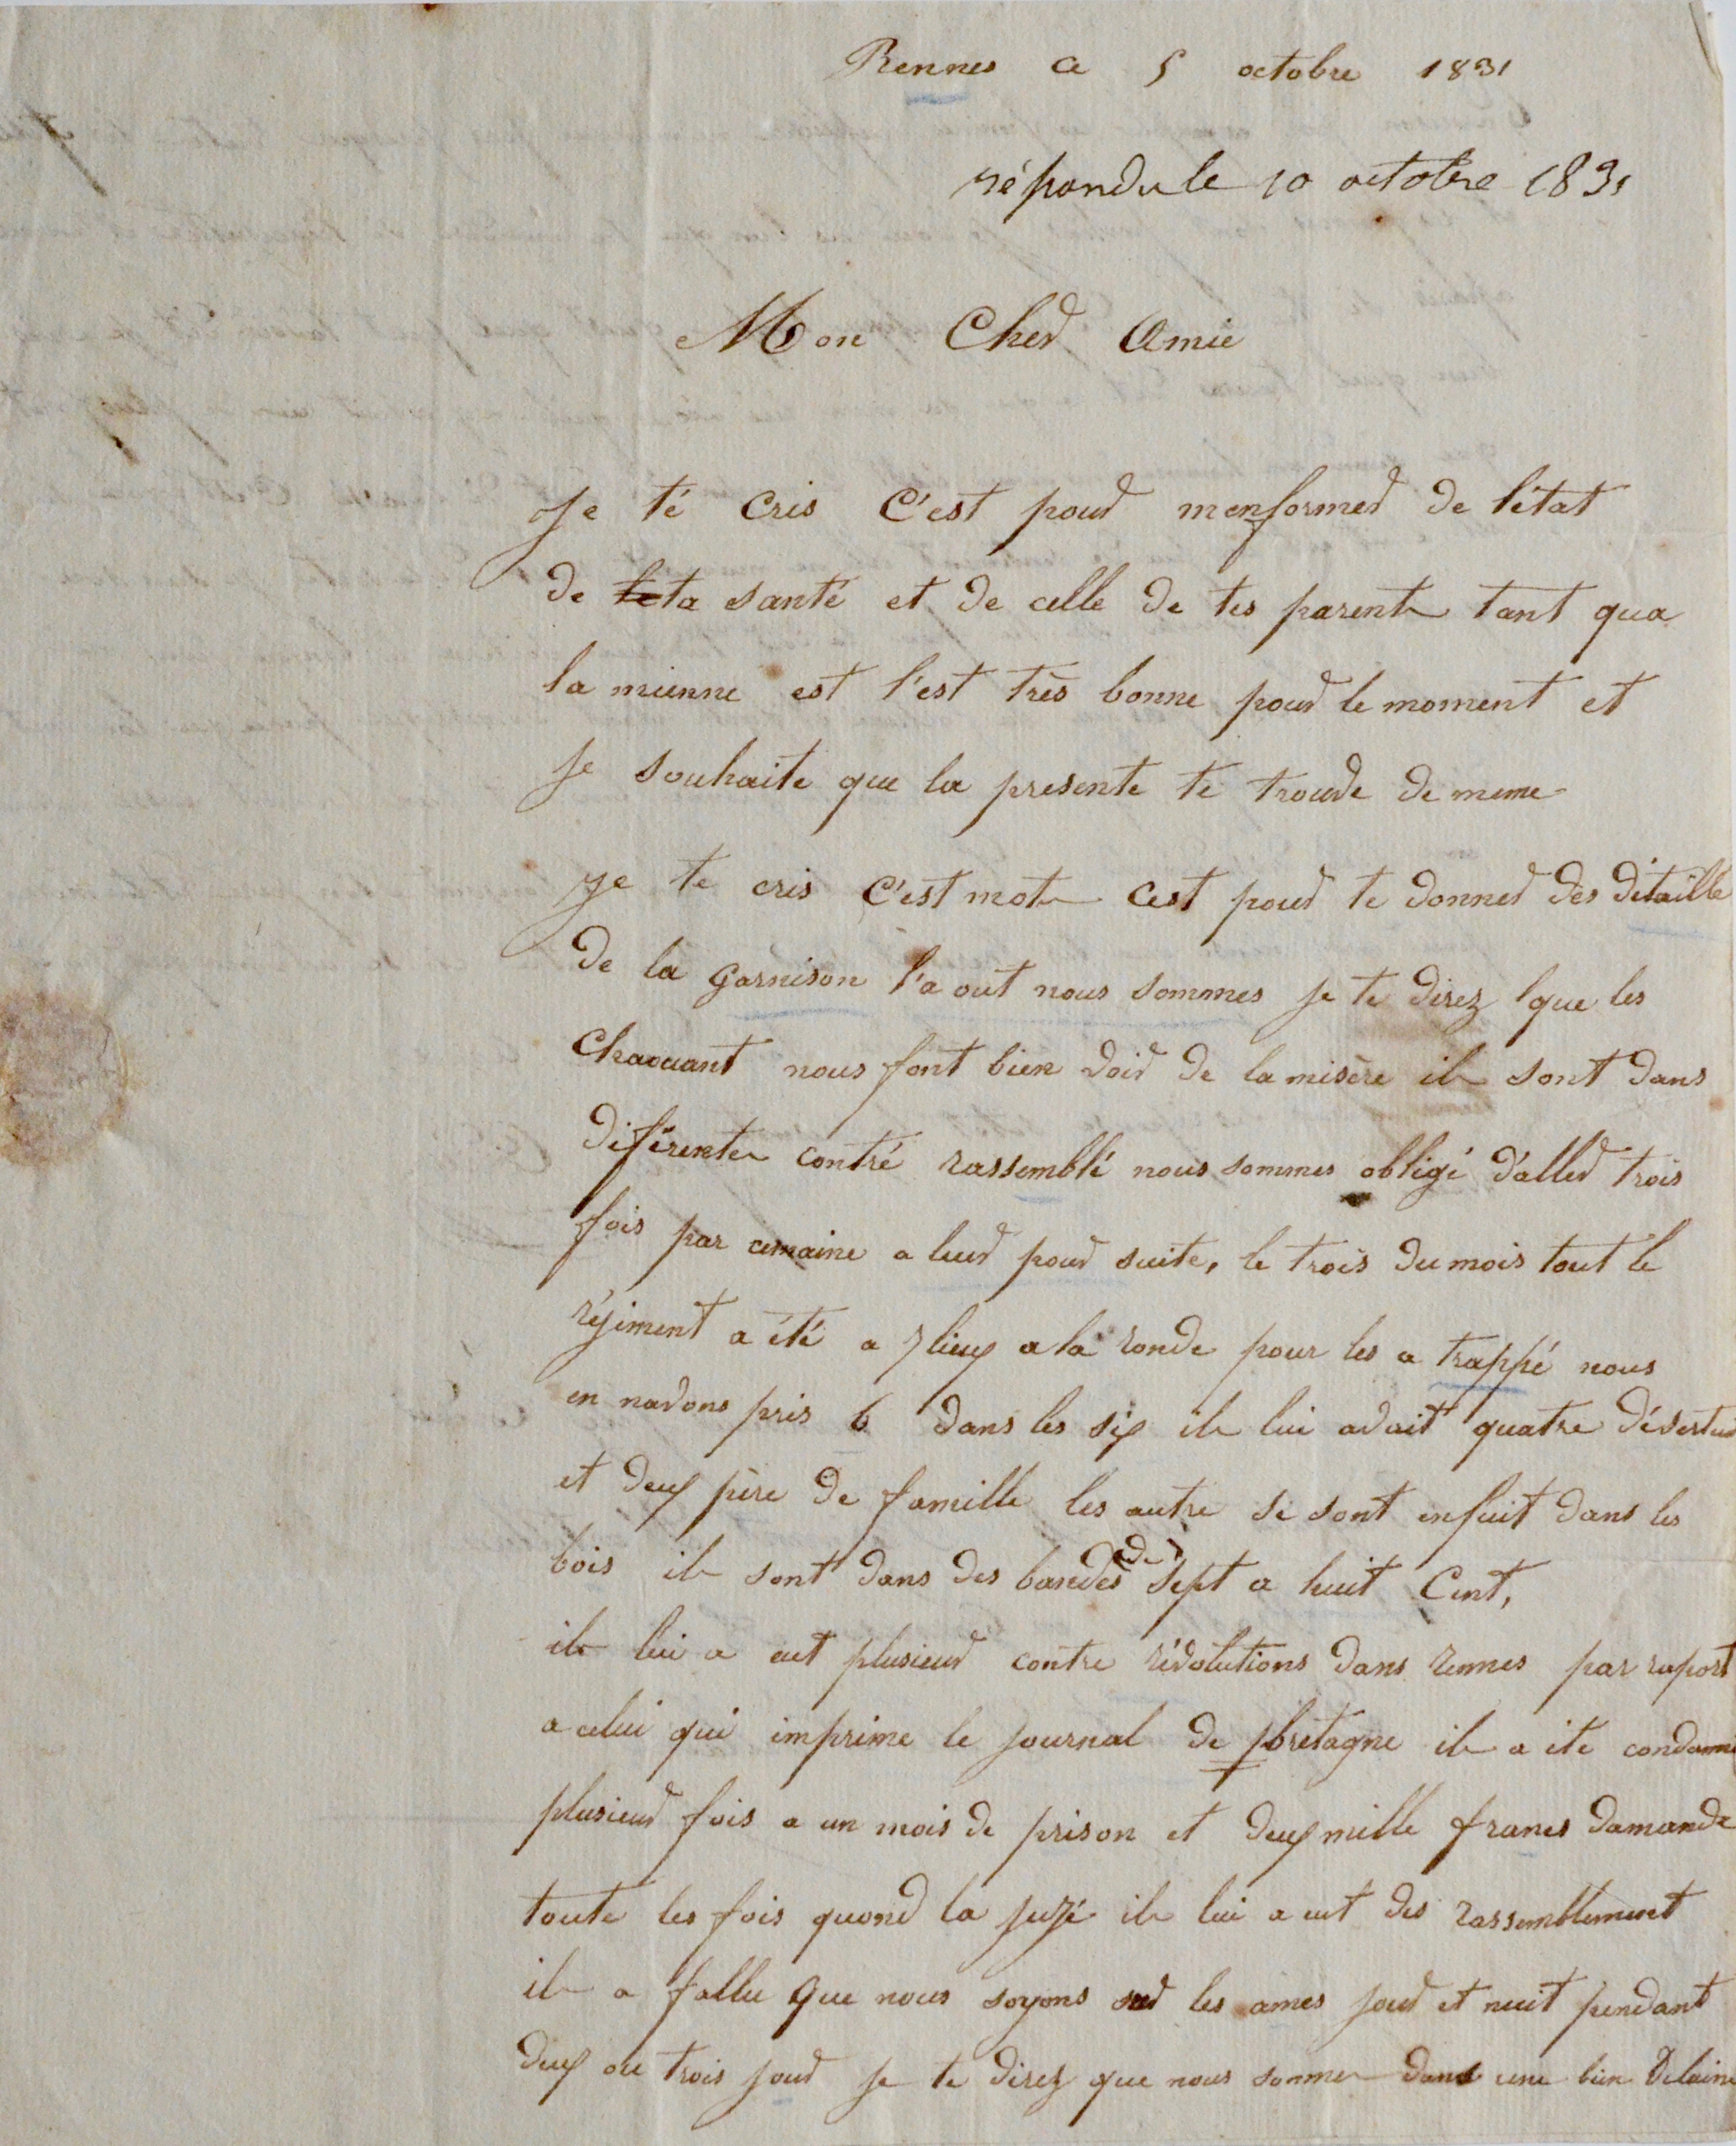 Rennes ce 5 octobre 1831
répondu le 10 octobre 1831
Mon Cher Amie
Je té cris C'est pour menformer de l'état
de ta santé et de celle de tes parents tant qua
la mienne est l'est très bonne pour le moment et
je souhaite que la presente te trouve de meme
je te cris c'est mots cest pour te donner dès détaille
de la garnison l'a out nous sommes je te direz que les
Chaouant nous font bien voir de la misère ils sont dans
diférentes contré rassemblé nous sommes obligé d'aller trois
fois par cemaine a leur pour suite, le trois du mois tout le
réjiment a été a 7 lieux a la ronde pour les a trappé nous
en navons pris 6 dans les six ils lui avait quatre déserteur
et deux père de famille les autre se sont enfuit dans les
bois ils sont dans des bandes de sept a huit Cent,
ils lui a eut plusieur contre révolutions dans rennes par raport
a celui qui imprime le journal de bretagne ils a ité condamné
plusieur fois a un mois de prison et deux mille francs damande
toute les fois quond la jujé ils lui a eut des rassemblement
ils a fallu que nous soyons sur les ames jour et nuit pendant
deux ou trois jour je te direz que nous sommes dans une bien vilaine